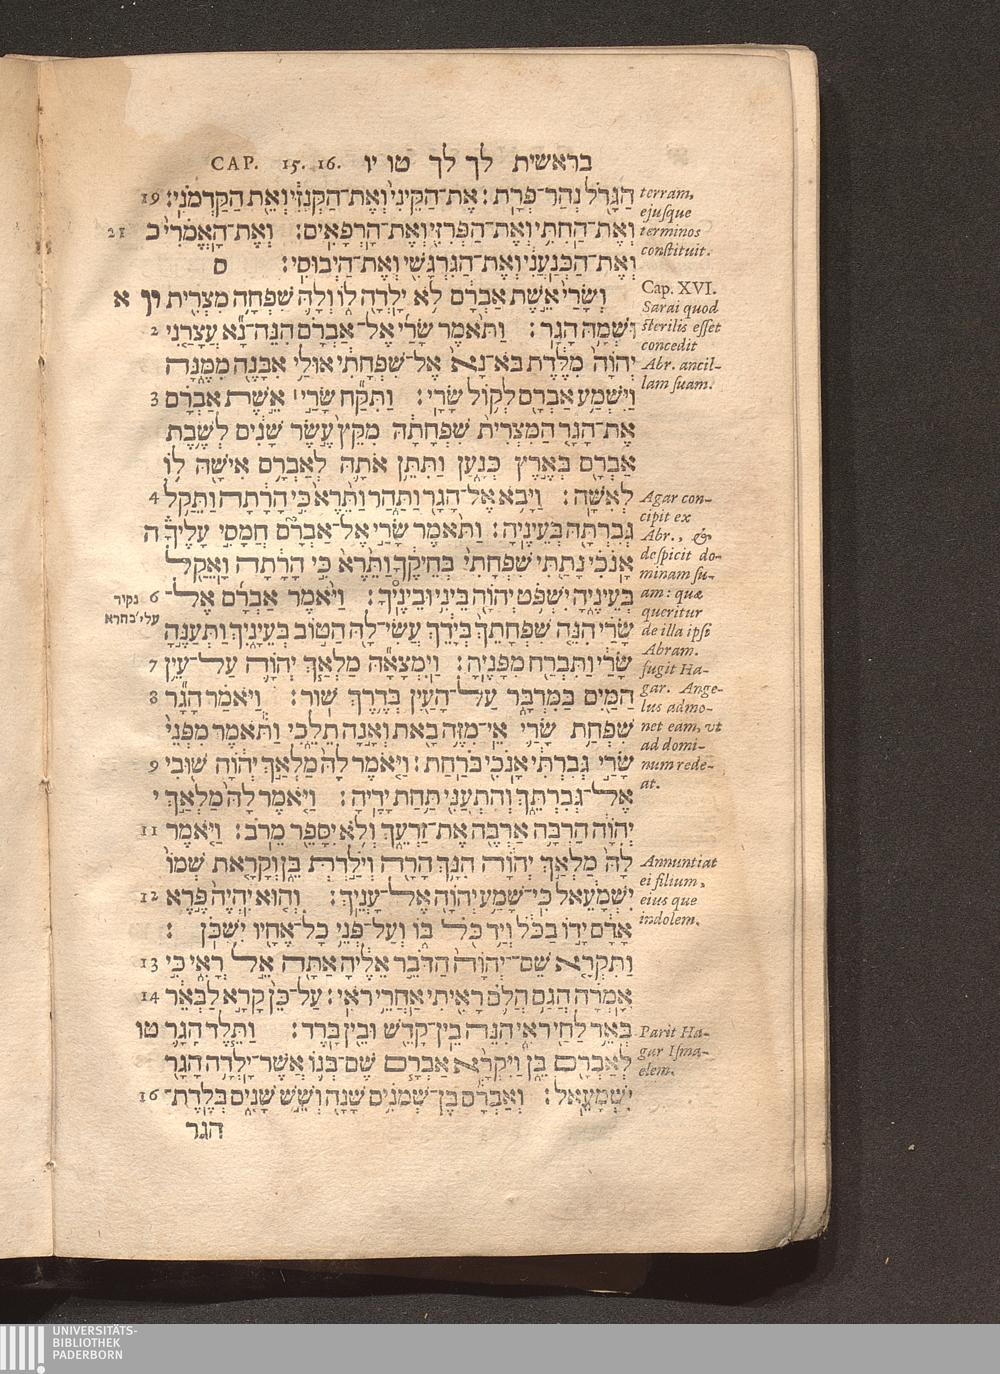 בראשית לך לך טו יו CAP. 15. 16.
הַגָּדֹל נְהַר־פְּרָת׃ אֶת־הַקֵּינִי וְאֶת־הַקְּנִזִּי וְאֵת הַקַּדְמֹנִי׃ 19
וְאֶת־הַחִתִּי וְאֶת־הַפְּרִזִּי וְאֶת־הָרְפָאִים׃ וְאֶת־הָאֱמֹרִי כ 21
וְאֶת־הַכְּנַעֲנִי וְאֶת־הַגִּרְגָּשִׁי וְאֶת־הַיְבוּסִי׃ ס
וְשָׂרַי אֵשֶׁת אַבְרָם לֹא יָלְדָה לוֹ וְלָהּ שִׁפְחָה מִצְרִית יו א
וּשְׁמָהּ הָגָר׃ וַתֹּאמֶר שָׂרַי אֶל־אַבְרָם הִנֵּה־נָא עֲצָרַנִי 2
יְהוָֹה מִלֶּדֶת בֹּא־נָא אֶל־שִׁפְחָתִי אוּלַי אִבָּנֶה מִמֶּנָּה
וַיִּשְׁמַע אַבְרָם לְקוֹל שָׂרָי׃ וַתִּקַּח שָׂרַי׀ אֵשֶׁת אַבְרָם 3
אֶת־הָגָר הַמִּצְרִית שִׁפְחָתָהּ מִקֵּץ עֶשֶׂר שָׁנִים לְשֶׁבֶת
אַבְרָם בְּאֶרֶץ כְּנָעַן וַתִּתֵּן אֹתָהּ לְאַבְרָם אִישָׁהּ לוֹ
לְאִשָּׁה׃ וַיָּבֹא אֶל־הָגָר וַתַּהַר וַתֵּרֶא כִּי הָרָתָה וַתֵּקַל 4
גְּבִרְתָּהּ בְּעֵינֶיהָ׃ וַתֹּאמֶר שָׂרַי אֶל־אַבְרָם חֲמָסִי עָלֶיךָ ה
אָנֹכִי נָתַתִּי שִׁפְחָתִי בְּחֵיקֶךָ וַתֵּרֶא כִּי הָרָתָה וָאֵקַל
בְּעֵינֶיהָ יִשְׁפֹּט יְהוָֹה בֵּינִי וּבֵינֶיךָ׃ וַיֹּאמֶר אַבְרָם אֶל־ 6
שָׂרַי הִנֵּה שִׁפְחָתֵךְ בְּיָדֵךְ עֲשִׂי־לָהּ הַטּוֹב בְּעֵינָיִךְ וַתְּעַנֶּהָ
שָׂרַי וַתִּבְרַח מִפָּנֶיהָ׃ וַיִּמְצָאָהּ מַלְאַךְ יְהוָֹה עַל־עֵין 7
הַמַּיִם בַּמִּדְבָּר עַל־הָעַיִן בְּדֶרֶךְ שׁוּר׃ וַיֹּאמַר הָגָר 8
שִׁפְחַת שָׂרַי אֵי־מִזֶּה בָאת וְאָנָה תֵלֵכִי וַתֹּאמֶר מִפְּנֵי
שָׂרַי גְּבִרְתִּי אָנֹכִי בֹּרַחַת׃ וַיֹּאמֶר לָהּ מַלְאַךְ יְהוָֹה שׁוּבִי 9
אֶל־גְּבִרְתֵּךְ וְהִתְעַנִּי תַּחַת יָדֶיהָ׃ וַיֹּאמֶר לָהּ מַלְאַךְ י
יְהוָֹה הַרְבָּה אַרְבֶּה אֶת־זַרְעֵךְ וְלֹא יִסָּפֵר מֵרֹב׃ וַיֹּאמֶר 11
לָהּ מַלְאַךְ יְהוָֹה הִנָּךְ הָרָה וְיֹלַדְתְּ בֵּן וְקָרָאת שְׁמוֹ
יִשְׁמָעֵאל כִּי־שָׁמַע יְהוָֹה אֶל־עָנְיֵךְ׃ וְהוּא יִהְיֶה פֶּרֶא 12
אָדָם יָדוֹ בַכֹּל וְיַד כֹּל בּוֹ וְעַל־פְּנֵי כָל־אֶחָיו יִשְׁכֹּן׃
וַתִּקְרָא שֵׁם־יְהוָֹה הַדֹּבֵר אֵלֶיהָ אַתָּה אֵל רֳאִי כִּי 13
אָמְרָה הֲגַם הֲלֹם רָאִיתִי אַחֲרֵי רֹאִי׃ עַל־כֵּן קָרָא לַבְּאֵר 14
בְּאֵר לַחַי רֹאִי הִנֵּה בֵין־קָדֵשׁ וּבֵין בָּרֶד׃ וַתֵּלֶד הָגָר טו
לְאַבְרָם בֵּן וַיִּקְרָא אַבְרָם שֶׁם־בְּנוֹ אֲשֶׁר־יָלְדָה הָגָר
יִשְׁמָעֵאל׃ וְאַבְרָם בֶּן־שְׁמֹנִים שָׁנָה וְשֵׁשׁ שָׁנִים בְּלֶדֶת־ 16
הגר
נקיד
עלי׳ בתרא
terram,
ejusque
terminos
constituit.
Cap. XVI.
Sarai quod
sterilis esset
concedit
Abr. ancil-
lam suam.
Agar con-
cipit ex
Abr., &
despicit do-
minam su-
am: quæ
queritur
de illa ipsi
Abram.
fugit Ha-
gar. Ange-
lus admo-
net eam, vt
ad domi-
num rede-
at.
Annuntiat
ei filium,
eius que
indolem.
Parit Ha-
gar Isma-
elem.
UNIVERSITÄTS-
BIBLIOTHEK
PADERBORN